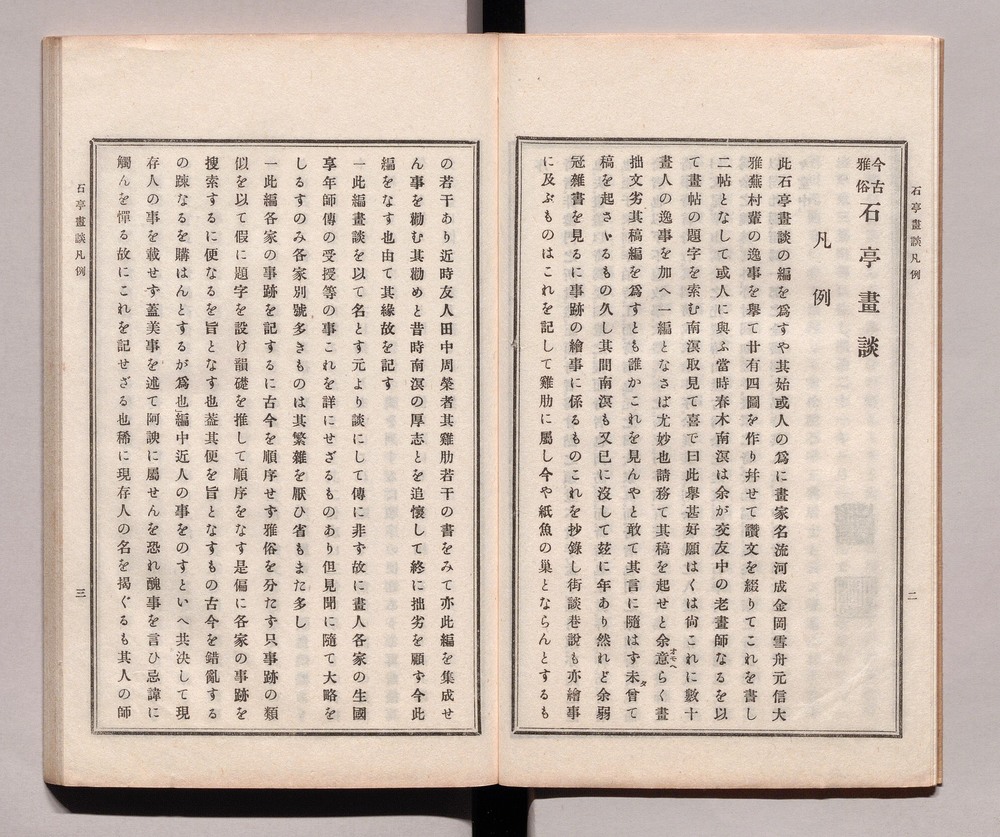 石亭畫談凡例
二
今古
雅俗
石亭畫談
凡例
此石亭畫談の編を爲すや其始或人の爲に畫家名流河成金岡雪舟元信大
雅蕪村輩の逸事を擧て廿有四圖を作り幷せて讚文を綴りてこれを書し
二帖となして或人に與ふ當時春木南溟は余が交友中の老畫師なるを以
て畫帖の題字を索む南溟取見て喜で曰此擧甚好願はくは尙これに數十
畫人の逸事を加へ一編となさば尤妙也請務て其稿を起せと余意らく畫
オモヘ
拙文劣其稿編を爲すとも誰かこれを見んやと敢て其言に隨はず未曾て
タ
稿を起さゝるもの久し其間南溟も又已に沒して玆に年あり然れど余弱
冠雜書を見るに事跡の繪事に係るものこれを抄錄し街談巷說も亦繪事
に及ぶものはこれを記して雞肋に屬し今や紙魚の巢とならんとするも
の若干あり近時友人田中周榮者其雞肋若干の書をみて亦此編を集成せ
ん事を勸む其勸めと昔時南溟の厚志とを追懷して終に拙劣を顧ず今此
編をなす也由て其緣故を記す
一此編畫談を以て名とす元より談にして傳に非ず故に畫人各家の生國
享年師傳の受授等の事これを詳にせざるものあり但見聞に隨て大略を
しるすのみ各家別號多きものは其繁雜を厭ひ省もまた多し
一此編各家の事跡を記するに古今を順序せず雅俗を分たず只事跡の類
似を以て假に題字を設け韻礎を推して順序をなす是偏に各家の事跡を
搜索するに便なるを旨となす也葢其便を旨となすもの古今を錯亂する
の踈なるを購はんとするが爲也編中近人の事をのすといへ共決して現
存人の事を載せず蓋美事を述て阿諛に屬せんを恐れ醜事を言ひ忌諱に
觸んを憚る故にこれを記せざる也稀に現存人の名を揭ぐるも其人の師
石亭畫談凡例
三